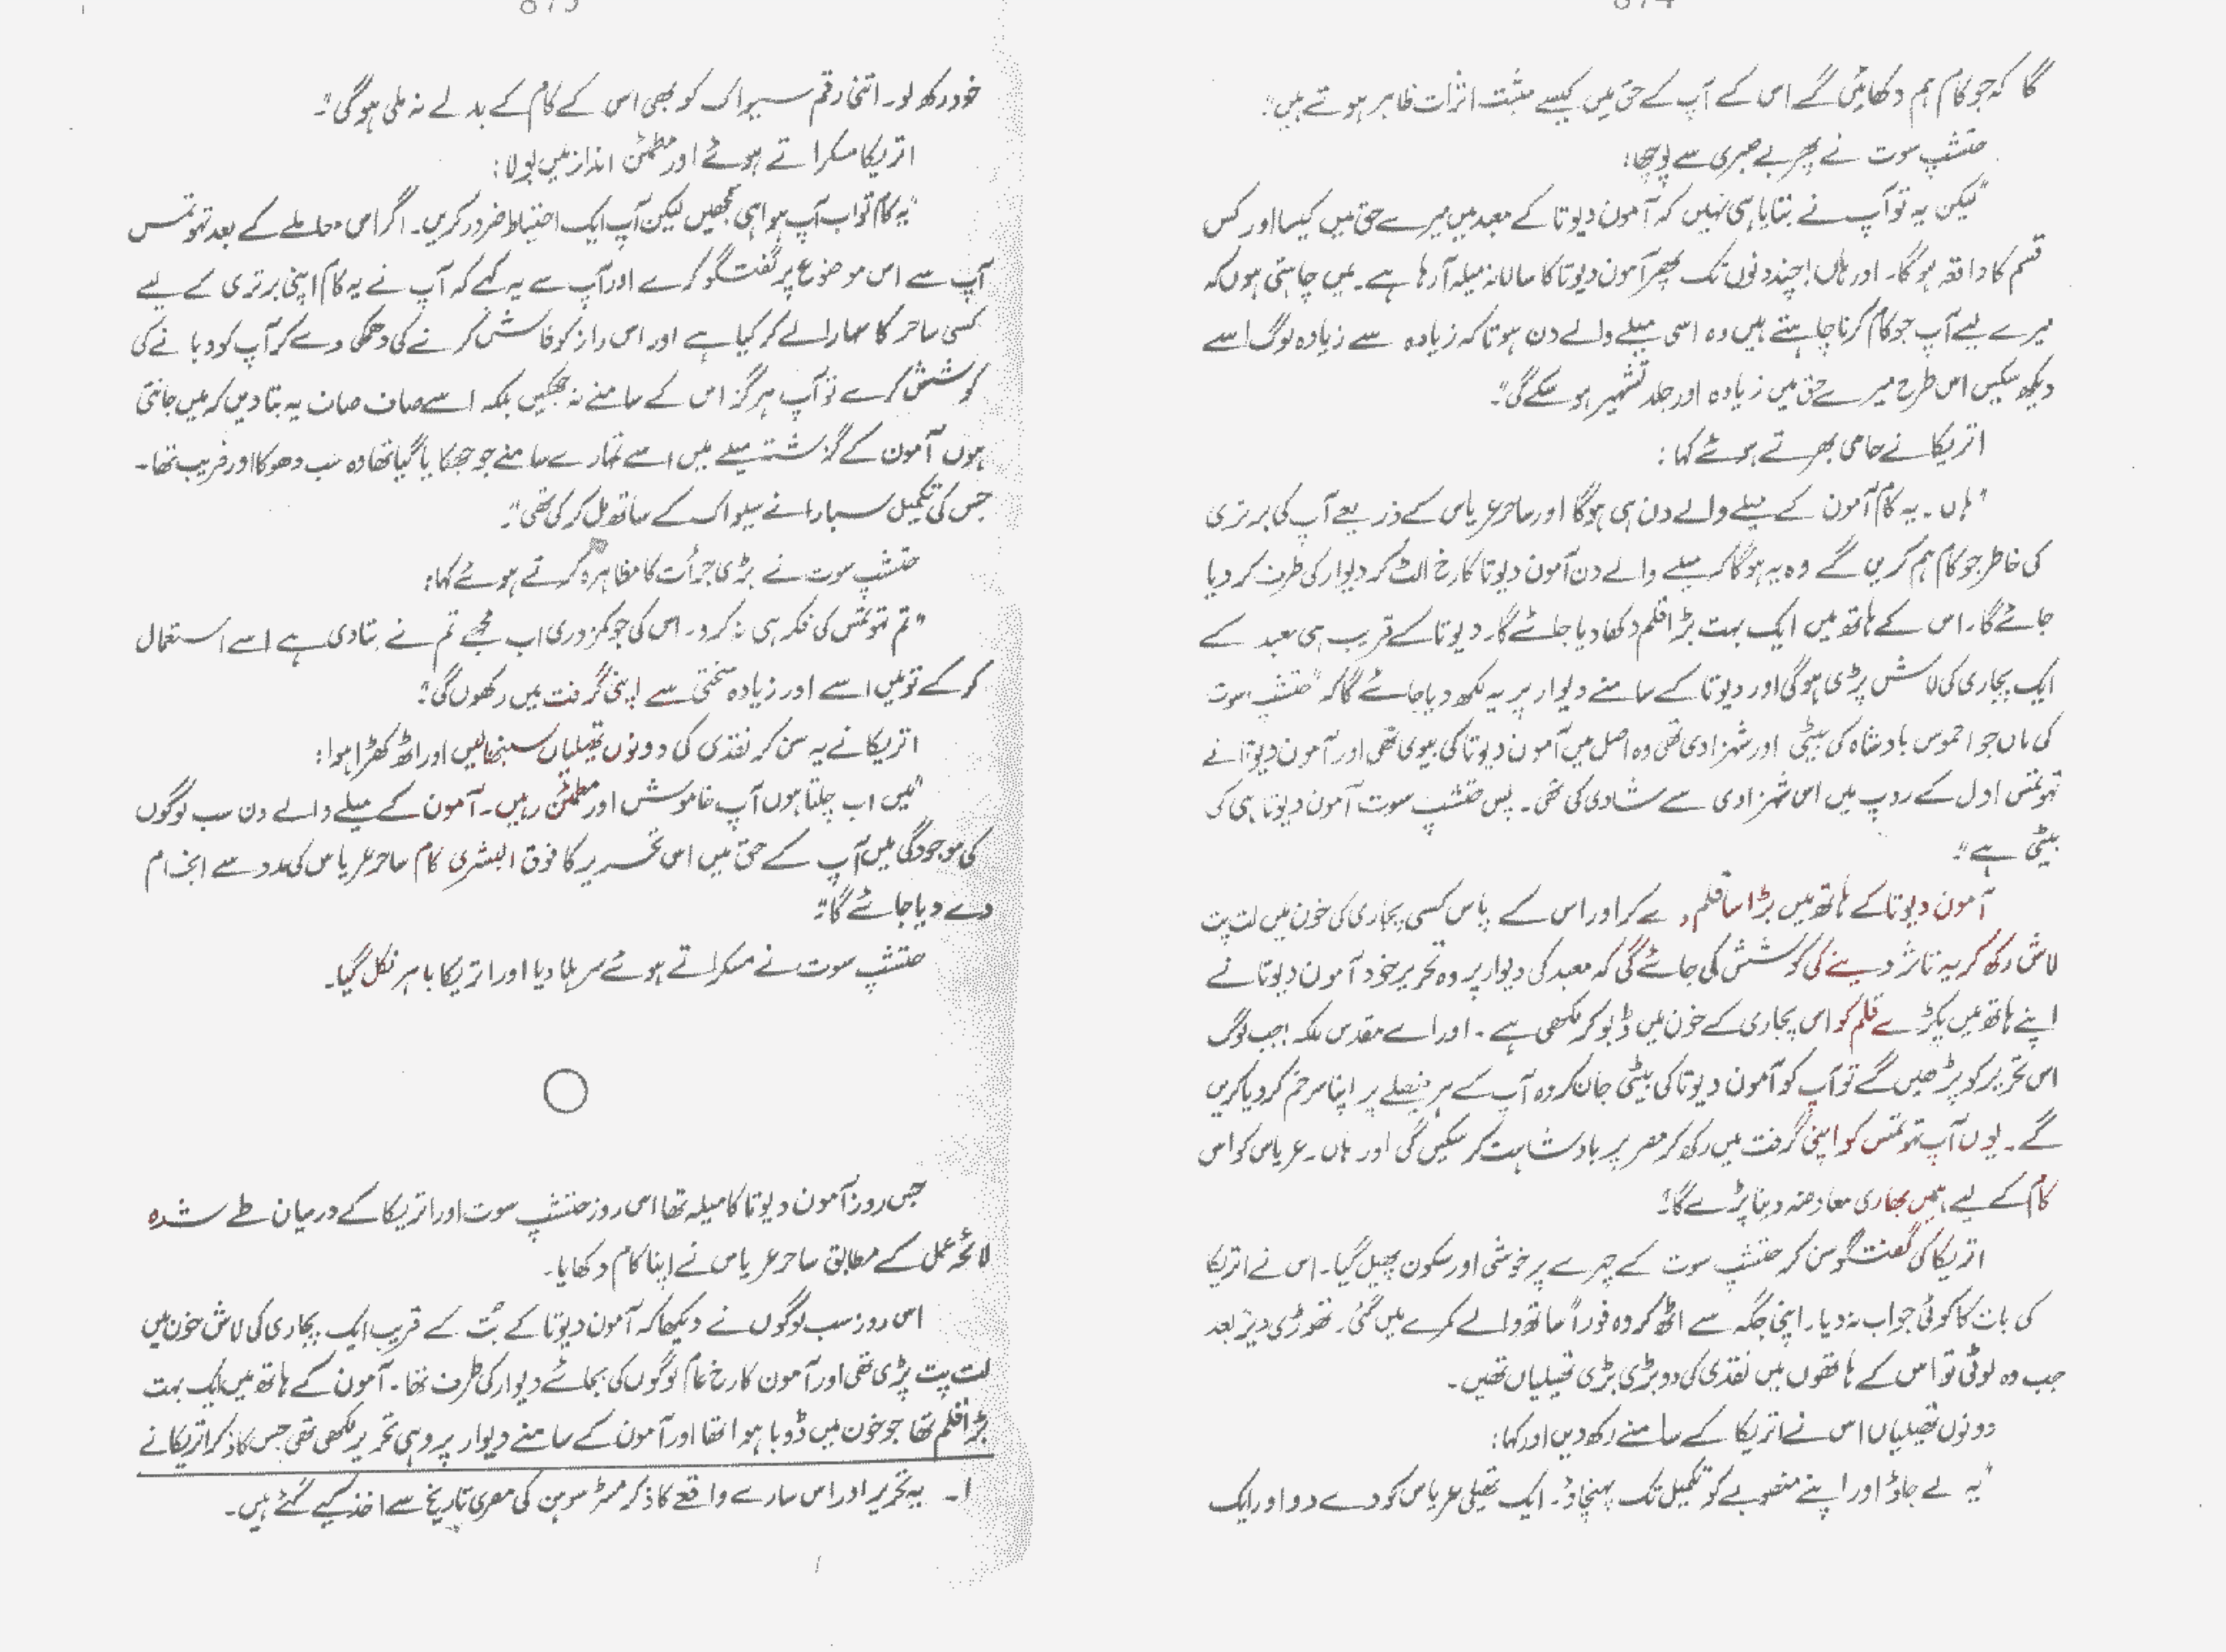 874
گا کہ جو کام ہم دکھائیں گے اس کے آپ کے حق میں کیسے مثبت اثرات ظاہر ہوتے ہیں"۔
حتشپ سوت نے پھر بے صبری سے پوچھا:
"لیکن یہ تو آپ نے بتایا ہی نہیں کہ آمون دیوتا کے معبد میں میرے حق میں کیسا اور کس
قسم کا واقعہ ہوگا۔ اور ہاں! چند دنوں تک پھر آمون دیوتا کا سالانہ میلہ آ رہا ہے۔ میں چاہتی ہوں کہ
میرے لیے آپ جو کام کرنا چاہتے ہیں وہ اسی میلے والے دن ہو تاکہ زیادہ سے زیادہ لوگ اسے
دیکھ سکیں اس طرح میرے حق میں زیادہ اور جلد تشہیر ہو سکے گی"۔
اتریکا نے حامی بھرتے ہوئے کہا:
"ہاں۔ یہ کام آمون کے میلے والے دن ہی ہوگا اور ساحر عریاس کے ذریعے آپ کی برتری
کی خاطر جو کام ہم کریں گے وہ یہ ہوگا کہ میلے والے دن آمون دیوتا کا رخ الٹ کر دیوار کی طرف کر دیا
جائے گا۔ اس کے ہاتھ میں ایک بہت بڑا قلم دکھا دیا جائے گا۔ دیوتا کے قریب ہی معبد کے
ایک پجاری کی لاش پڑی ہوگی اور دیوتا کے سامنے دیوار پر یہ لکھ دیا جائے گا کہ "حتشپ سوت
کی ماں جو احموس بادشاہ کی بیٹی اور شہزادی تھی وہ اصل میں آمون دیوتا کی بیوی تھی اور آمون دیوتا نے
تہوتمس اول کے روپ میں اس شہزادی سے شادی کی تھی۔ پس حتشپ سوت آمون دیوتا ہی کی
بیٹی ہے"۔
آمون دیوتا کے ہاتھ میں بڑا سا قلم دے کر اور اس کے پاس کسی پجاری کی خون میں لت پت
لاش رکھ کر یہ تاثر دینے کی کوشش کی جائے گی کہ معبد کی دیوار پر وہ تحریر خود آمون دیوتا نے
اپنے ہاتھ میں پکڑے قلم کو اس پجاری کے خون میں ڈبو کر لکھی ہے۔ اور اے مقدس ملکہ! جب لوگ
اس تحریر کو پڑھیں گے تو آپ کو آمون دیوتا کی بیٹی جان کر وہ آپ کے ہر فیصلے پر اپنا سر خم کر دیا کریں
گے۔ یوں آپ تہوتمس کو اپنی گرفت میں رکھ کر مصر پر بادشاہت کر سکیں گی اور ہاں۔ عریاس کو اس
کام کے لیے ہمیں بھاری معاوضہ دینا پڑے گا"۔
اتریکا کی گفتگو سن کر حتشپ سوت کے چہرے پر خوشی اور سکون پھیل گیا۔ اس نے اتریکا
کی بات کا کوئی جواب نہ دیا۔ اپنی جگہ سے اٹھ کر وہ فوراً ساتھ والے کمرے میں گئی۔ تھوڑی دیر بعد
جب وہ لوٹی تو اس کے ہاتھوں میں نقدی کی دو بڑی بڑی تھیلیاں تھیں۔
دونوں تھیلیاں اس نے اتریکا کے سامنے رکھ دیں اور کہا:
"یہ لے جاؤ اور اپنے منصوبے کو تکمیل تک پہنچاؤ۔ ایک تھیلی عریاس کو دے دو اور ایک
875
خود رکھ لو۔ اتنی رقم سیواک کو بھی اس کے کام کے بدلے نہ ملی ہوگی"۔
اتریکا مسکراتے ہوئے اور مطمئن انداز میں بولا:
"یہ کام تو اب آپ ہوا ہی سمجھیں لیکن آپ ایک احتیاط ضرور کریں۔ اگر اس معاملے کے بعد تہوتمس
آپ سے اس موضوع پر گفتگو کرے اور آپ سے یہ کہے کہ آپ نے یہ کام اپنی برتری کے لیے
کسی ساحر کا سہارا لے کر کیا ہے اور اس راز کو فاش کرنے کی دھمکی دے کر آپ کو دبانے کی
کوشش کرے تو آپ ہرگز اس کے سامنے نہ جھکیں بلکہ اسے صاف صاف یہ بتا دیں کہ میں جانتی
ہوں آمون کے گزشتہ میلے میں اسے تمہارے سامنے جو جھکایا گیا تھا وہ سب دھوکا اور فریب تھا۔
جس کی تکمیل سبارا نے سیواک کے ساتھ مل کر کی تھی"۔
حتشپ سوت نے بڑی جرأت کا مظاہرہ کرتے ہوئے کہا:
"تم تہوتمس کی فکر ہی نہ کرو۔ اس کی جو کمزوری اب مجھے تم نے بتا دی ہے اسے استعمال
کر کے تو میں اسے اور زیادہ سختی سے اپنی گرفت میں رکھوں گی"۔
اتریکا نے یہ سن کر نقدی کی دونوں تھیلیاں سنبھالیں اور اٹھ کھڑا ہوا:
"میں اب چلتا ہوں آپ خاموش اور مطمئن رہیں۔ آمون کے میلے والے دن سب لوگوں
کی موجودگی میں آپ کے حق میں اس تحریر کا فوق البشری کام ساحر عریاس کی مدد سے انجام
دے دیا جائے گا"۔
حتشپ سوت نے مسکراتے ہوئے سر ہلا دیا اور اتریکا باہر نکل گیا۔
جس روز آمون دیوتا کا میلہ تھا اس روز حتشپ سوت اور اتریکا کے درمیان طے شدہ
لائحہ عمل کے مطابق ساحر عریاس نے اپنا کام دکھایا۔
اس روز سب لوگوں نے دیکھا کہ آمون دیوتا کے بُت کے قریب ایک پجاری کی لاش خون میں
لت پت پڑی تھی اور آمون کا رخ عام لوگوں کی بجائے دیوار کی طرف تھا۔ آمون کے ہاتھ میں ایک بہت
بڑا قلم تھا جو خون میں ڈوبا ہوا تھا اور آمون کے سامنے دیوار پر وہی تحریر لکھی تھی جس کا ذکر اتریکا نے
۱۔ یہ تحریر اور اس سارے واقعے کا ذکر مسٹر سوین کی مصری تاریخ سے اخذ کیے گئے ہیں۔